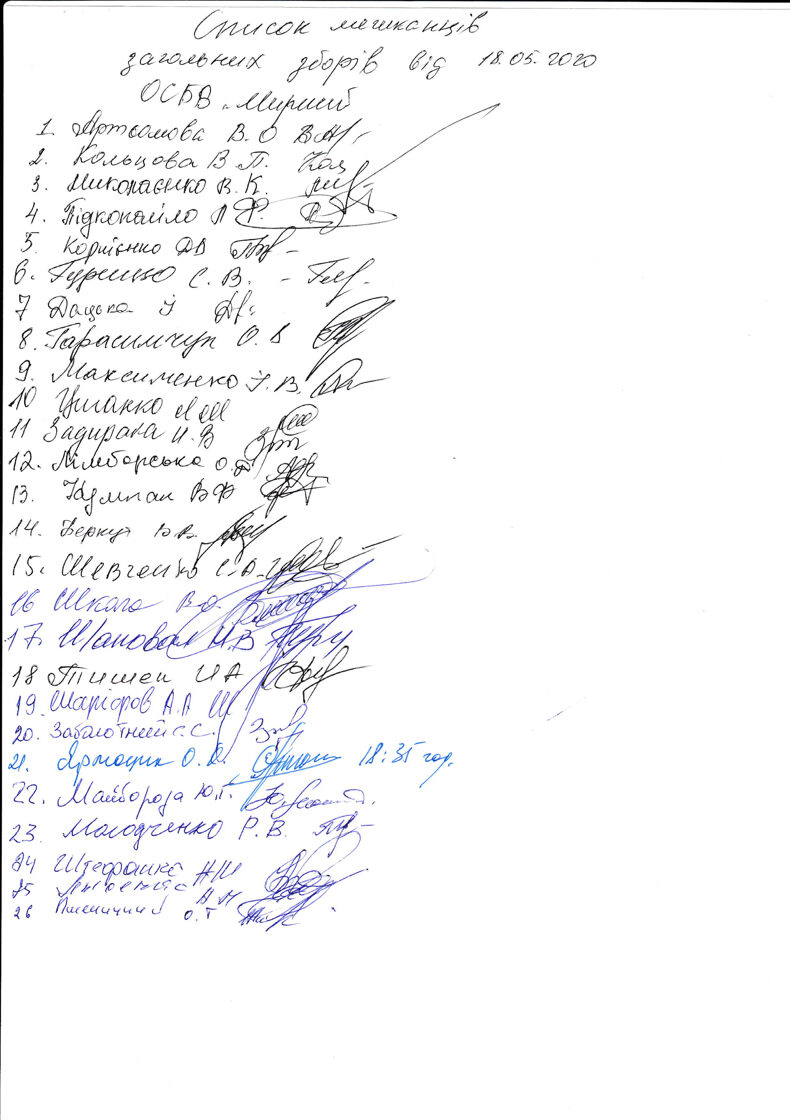 Список мешканців
загольних зборів від 18.05.2020
ОСББ "Мирний
1. Артьомова В.О
2. Кольцова В П.
3. Миколаєнко В.К.
4. Підкопайло Л Ф.
5. Корнієнко ДВ
6. Гуренко С. В.
7 Дацька І
8. Гарасимчук О.В
9. Максименко І. В.
10 Цманко Л М
11 Задирака Н.В
12. Лімборська О.
13. Кумпан В Ф
14. Беркут В.В.
15. Шевченко С.А.
16 Шкода В.О.
17. Шаповал Н.В
18 Тишек И А
19. Шаріфов А.А
20. Заболотний С.С.
21. О. 18:35 год.
22. Майборода Ю.Г.
23. Молодченко Р. В.
24 Штефанко Н М
25 Н М
26 Пшеничний О.Т